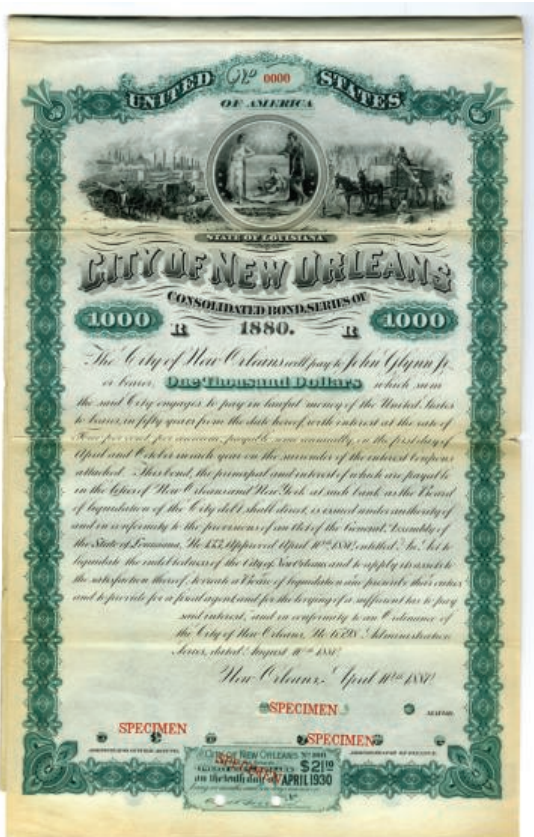 UNITED No 0000 STATES
OF AMERICA
STATE OF LOUISIANA
CITY OF NEW ORLEANS
CONSOLIDATED BOND, SERIES OF
1000 R 1880. R 1000
The City of New Orleans will pay to John Glynn Jr.
or bearer, One Thousand Dollars which sum
the said City engages to pay in lawful money of the United States
to bearer, in fifty years from the date hereof, with interest at the rate of
Four per cent. per annum, payable semi annually, on the first day of
April and October in each year on the surrender of the interest coupons
attached. This bond, the principal and interest of which are payable
in the Cities of New Orleans and New York at such bank as the Board
of liquidation of the City debt shall direct, is issued under authority of
and in conformity to the provisions of an Act of the General Assembly of
the State of Louisiana, No 133, Approved April 10th 1880, entitled "An Act to
liquidate the indebtedness of the City of New Orleans and to apply its assets to
the satisfaction thereof, to create a Board of liquidation and prescribe their duties
and to provide for a fiscal agent and for the levying of a sufficient tax to pay
said interest, and in conformity to an Ordinance of
the City of New Orleans, No Administration
Series, dated August 10th 1881
New Orleans, April 10th 1880
SPECIMEN
SPECIMEN SPECIMEN
ADMINISTRATOR OF FINANCE.
CITY OF NEW ORLEANS
SPECIMEN $21
on the tenth day of APRIL 1930